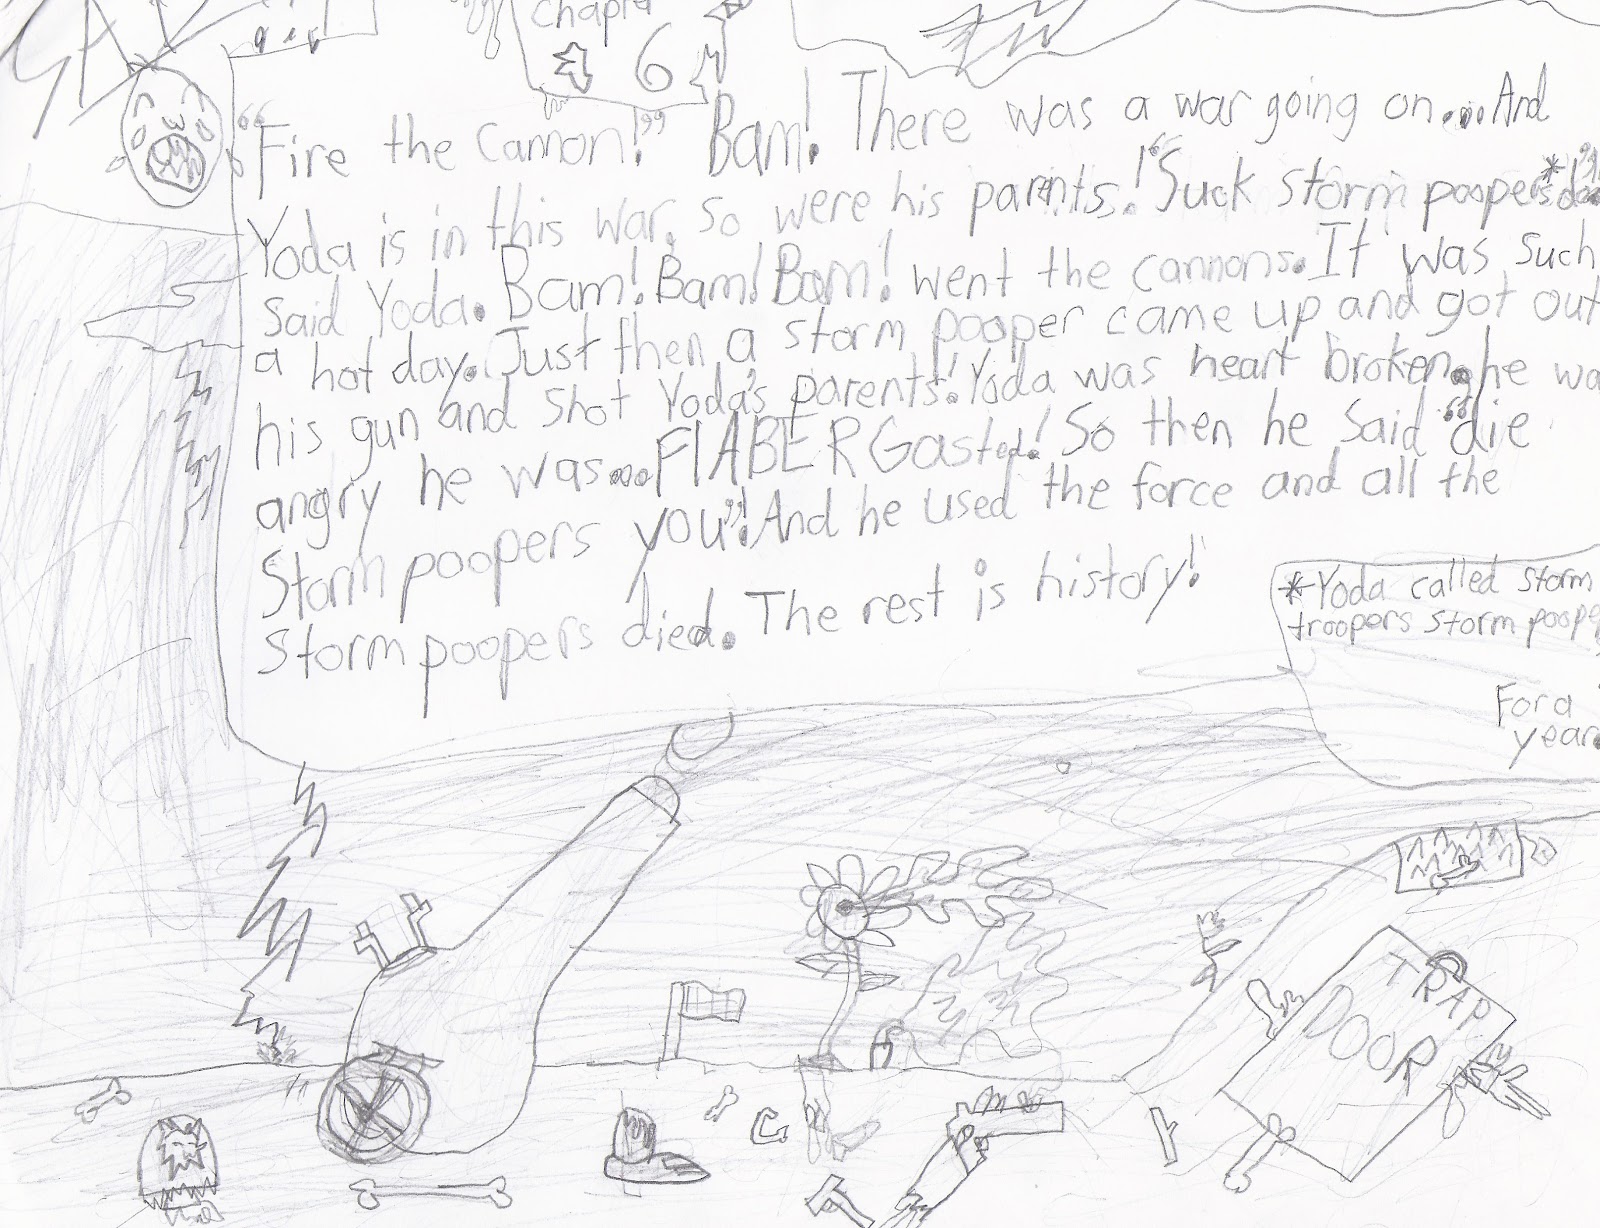 SAD
Chapter
6
"Fire the cannon!" Bam! There was a war going on... And
Yoda is in this war. so were his parints.! "Suck storm poopers*!"
said Yoda. Bam! Bam! Bam! went the cannons. It was such
a hot day. Just then a storm pooper came up and got out
his gun and shot Yoda's parents! Yoda was heart broken. he wa
angry he was... FlABERGasted! So then he said "die
Storm poopers you"! And he used the force and all the
Storm poopers died. The rest is history!
*Yoda called storm
troopers storm poope
For a
year.
TRAP
DOOR